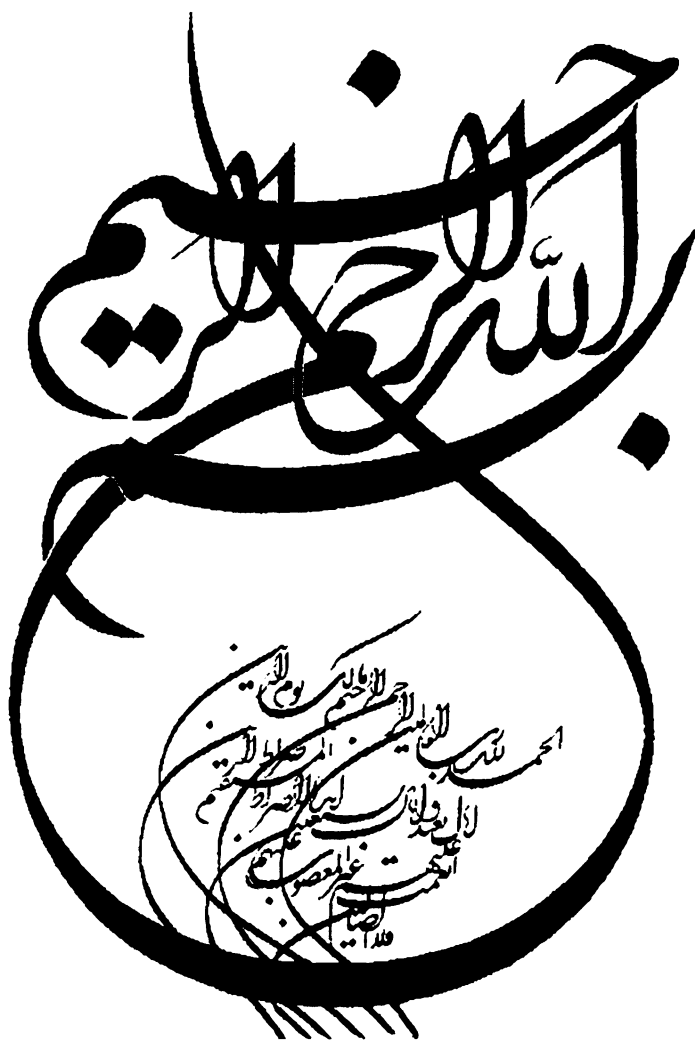 بسم الله الرحمن الرحيم
الحمد لله رب العالمين
الرحمن الرحيم مالك يوم الدين
اياك نعبد واياك نستعين
اهدنا الصراط المستقيم
صراط الذين انعمت عليهم
غير المغضوب عليهم
ولا الضالين